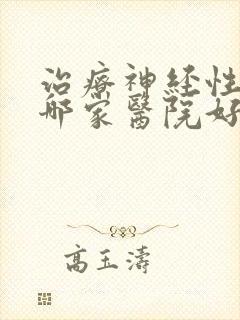 治療神経性
哪家醫院好
高玉濤